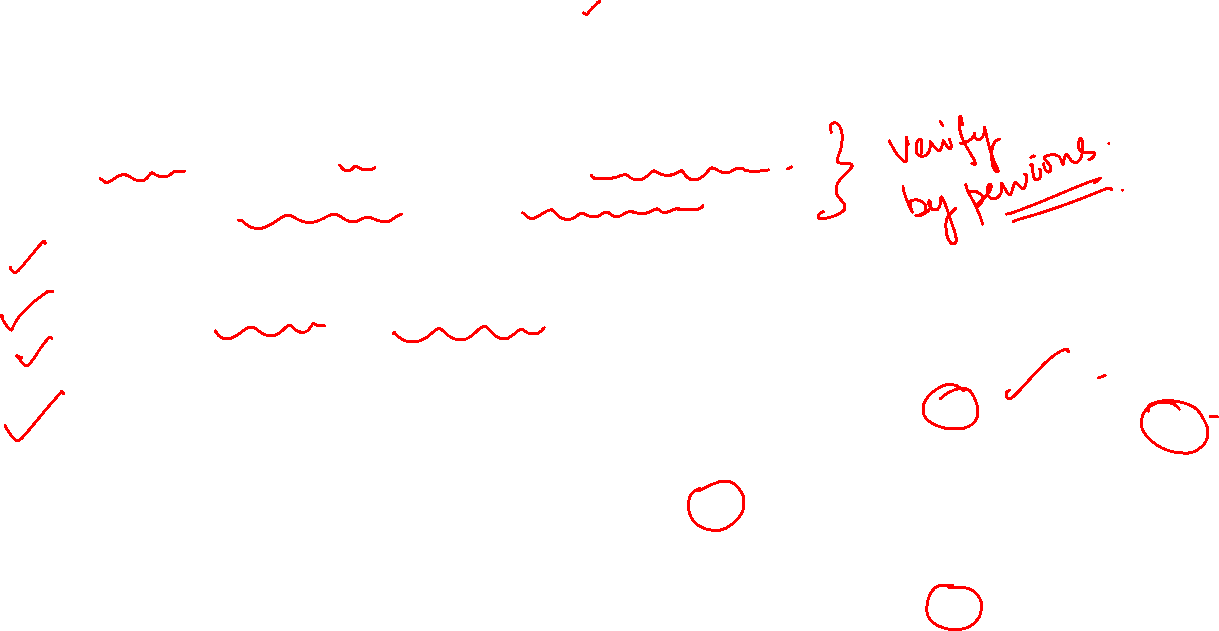 verify
by pensions.